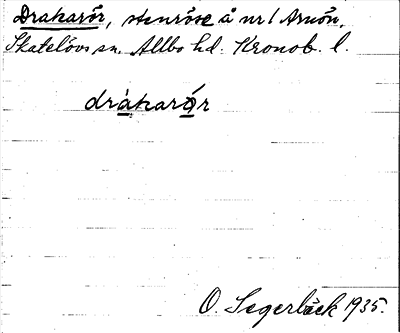 Drakarör, stenröse å nr 1 Arnön,
Skatelövs sn. Allbo hd. Kronob. l.
drákarǿr
O. Segerbäck 1935.